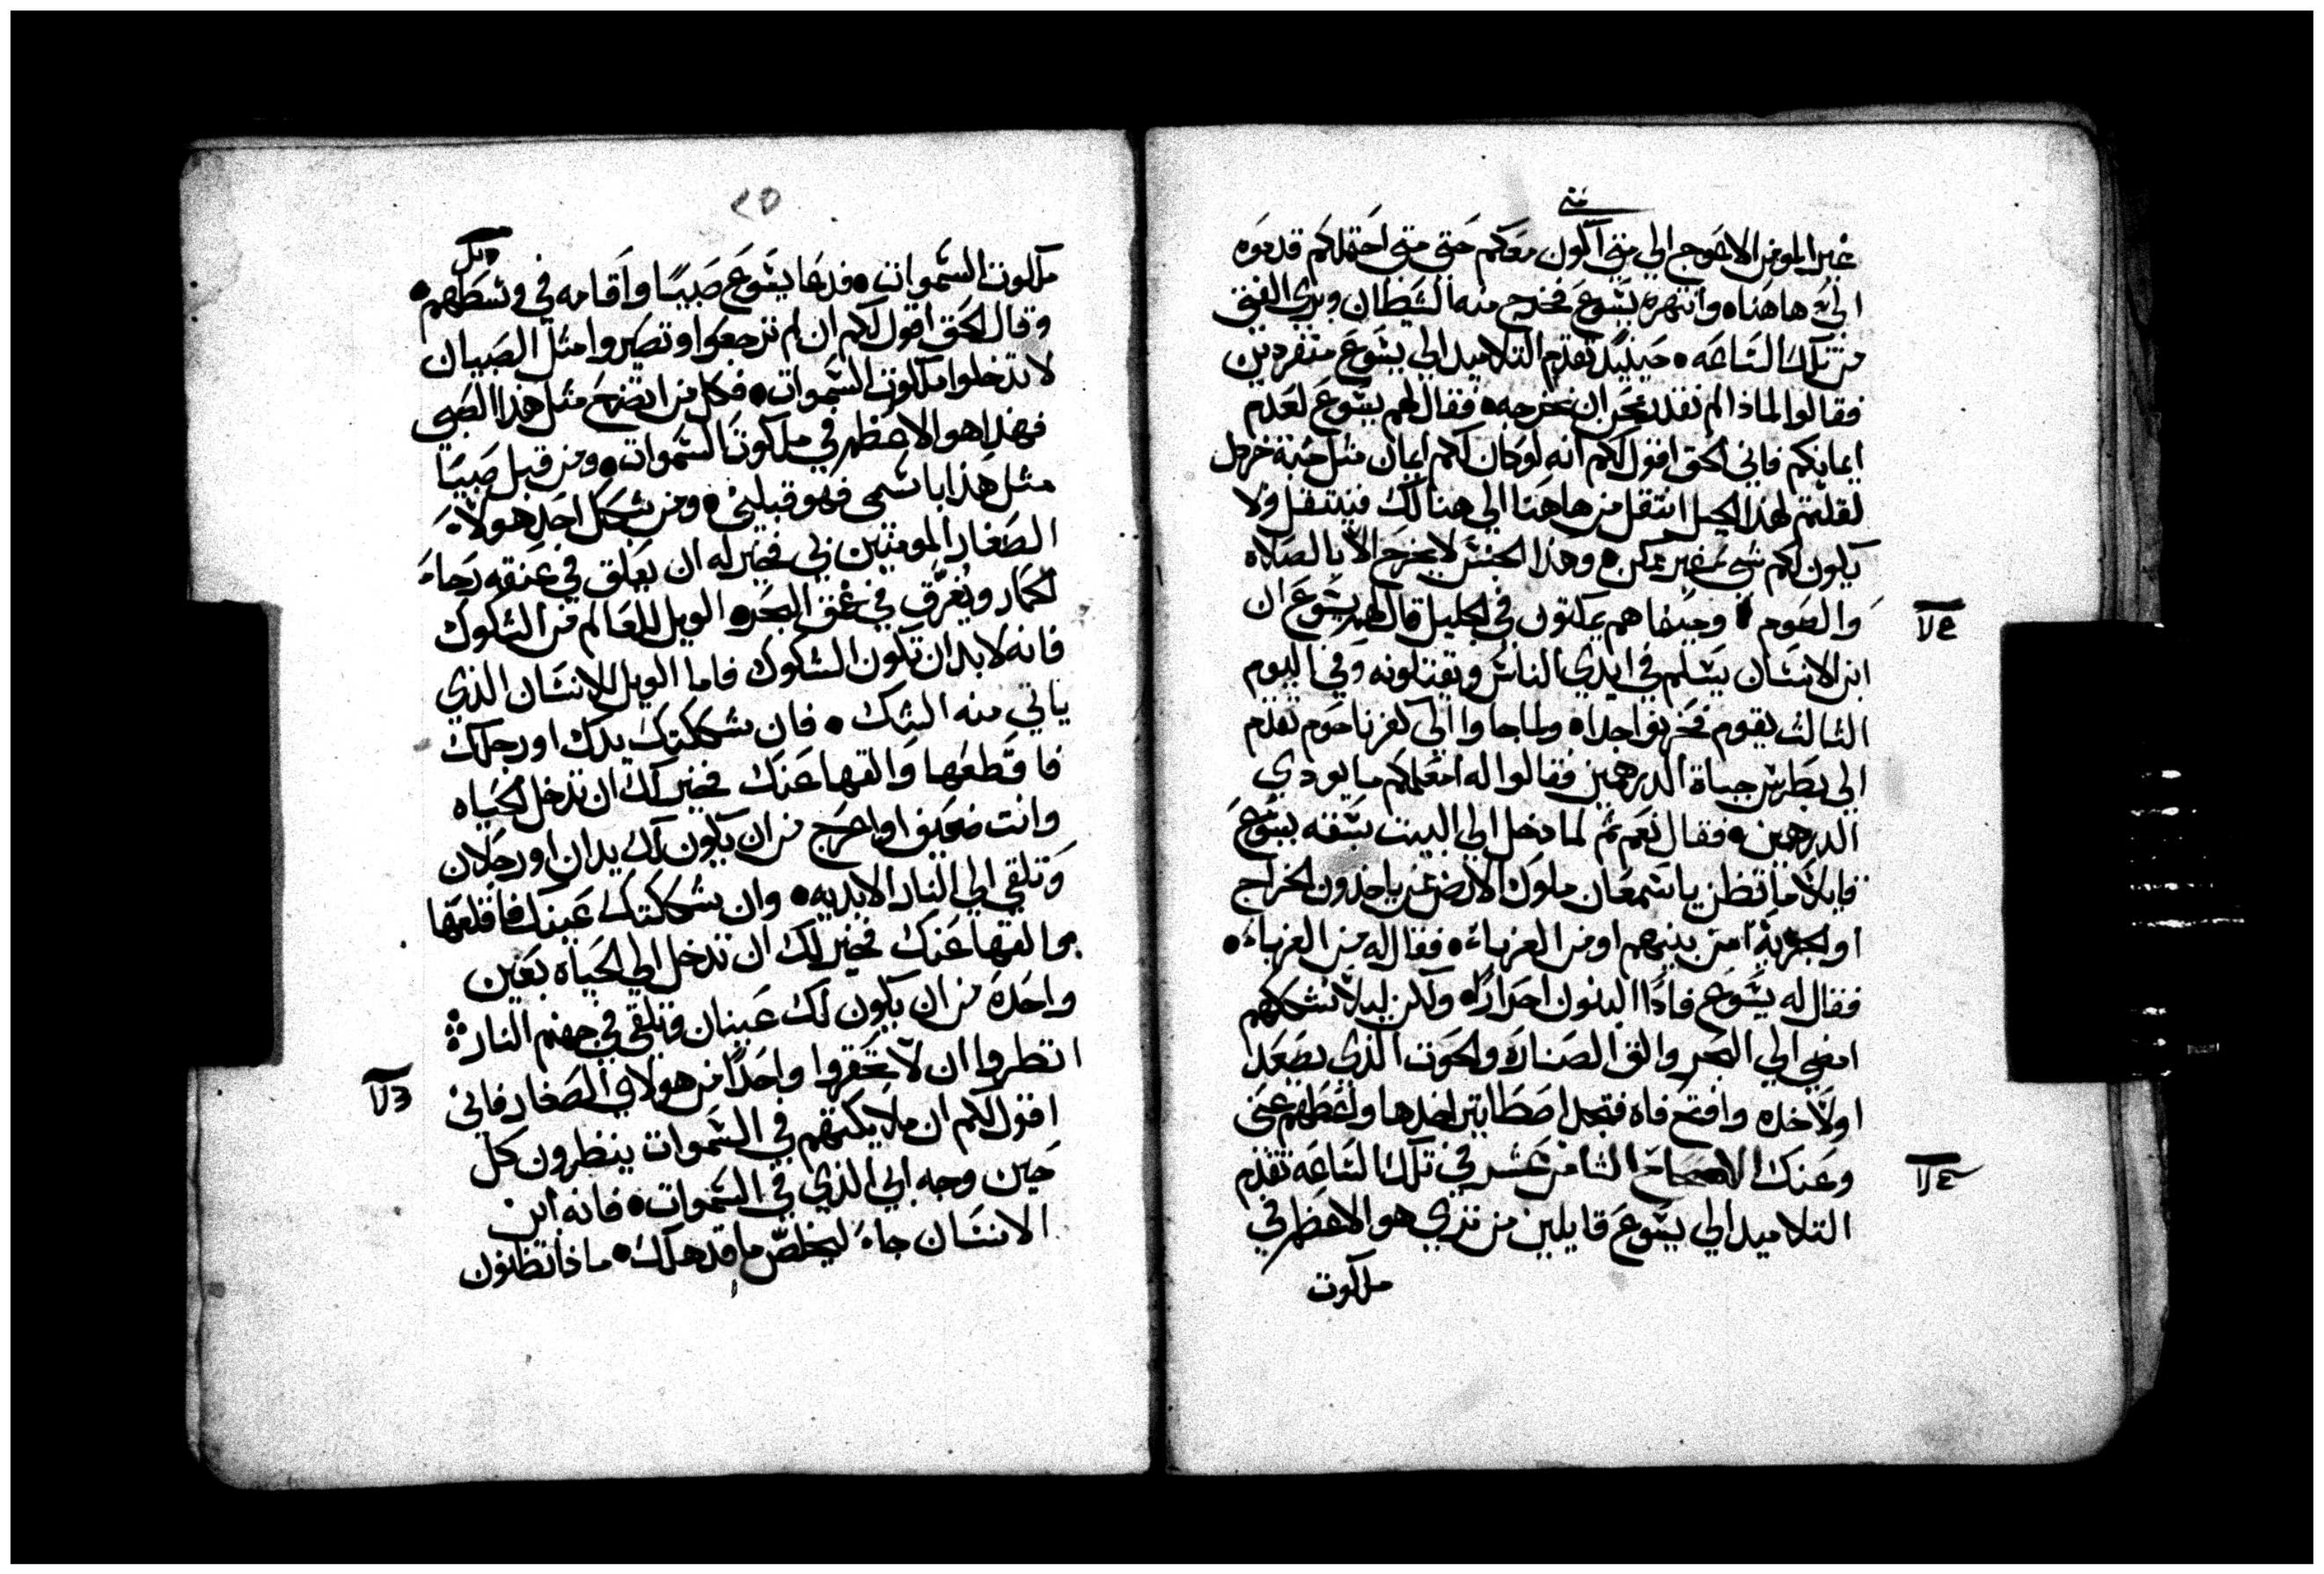 متى
غير المومن الاعوج الي متي اكون معكم حتي متي احتملكم قدموه
الي ها هنا • وانتهره يشوع فخرج منه الشيطان وبري الفتي
من تلك الساعه • حينيذ تقدم التلاميد الي يشوع منفردين
فقالوا لماذا لم نقدر نحن ان نخرجه • فقال لهم يشوع لعدم
ايمانكم فاني الحق اقول لكم انه لو كان لكم ايمان مثل حبة خردل
لقلتم لهذا الجبل انتقل من هاهنا الي هنالك فينتقل ولا
يكون لكم شي غير ممكن • وهذا الجنس لا يخرج الا بالصلاه
والصوم • وحينما هم يمكتون في الجليل قال لهم يشوع ان
ابن الانسان يسلم في ايدي الناس ويقتلونه وفي اليوم
الثالث يقوم فحزنوا جدا • ولما جاوا الي كفرناحوم تقدم
الي بطرس جباة الدرهمين فقالوا له امعلمكم ما يودي
الدرهمين • فقال نعم ثم لما دخل الي البيت سبقه يشوع
قايلا ما تظن يا سمعان ملوك الارض ممن ياخذون الخراج
او الجزية امن بنيهم او من الغرباء • فقال له من الغرباء •
فقال له يشوع فاذا البنون احرارا • ولكن ليلا نشككهم
امضي الي البحر والق الصنارة والحوت الذي يصعد
اولا خده وافتح فاه فتجد اصطاتير اخدها واعطهم عني
وعنك الاصحاح الثامن عشر في تلك الساعه تقدم
التلاميد الي يشوع قايلين من تري هو الاعظم في
ملكوت
٢٥
ملكوت السموات • فدعا يشوع صبيا واقامه في وسطهم •
وقال الحق اقول لكم ان لم ترجعوا وتصيروا مثل الصبيان
لا تدخلوا ملكوت السموات • فكل من اتضع مثل هذا الصبي
فهذا هو الاعظم في ملكوت السموات • ومن قبل صبيا
مثل هذا باسمي فهو قبلني • ومن شكك احد هولاء
الصغار المومنين بي فخير له ان يعلق في عنقه رحاء
الحمار ويغرق في عمق البحر • الويل للعالم من الشكوك
فانه لا بد ان تكون الشكوك فاما الويل للانسان الذي
ياتي منه الشك • فان شككتك يدك او رجلك
فاقطعها والقها عنك فخير لك ان تدخل الحياه
وانت ضعيف او اعرج من ان يكون لك يدان او رجلان
وتلقي الي النار الابديه • وان شككتك عينك فاقلعها
والقها عنك فخير لك ان تدخل الي الحياه بعين
واحدة من ان يكون لك عينان وتلقي في جهنم النار
انظروا ان لا تحقروا واحدا من هولاي الصغار فاني
اقول لكم ان ملايكتهم في السموات ينظرون كل
حين وجه ابي الذي في السموات • فانه ابن
الانسان جاء ليخلص ما قد هلك • ماذا تظنون